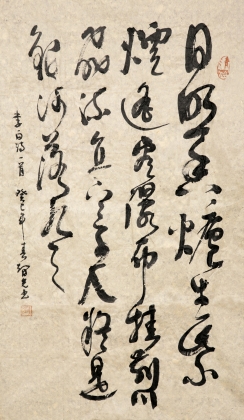 日照香爐生紫
煙遙看瀑布掛前川
飛流直下三千尺疑是
銀河落九天
李白詩一首 癸巳年春